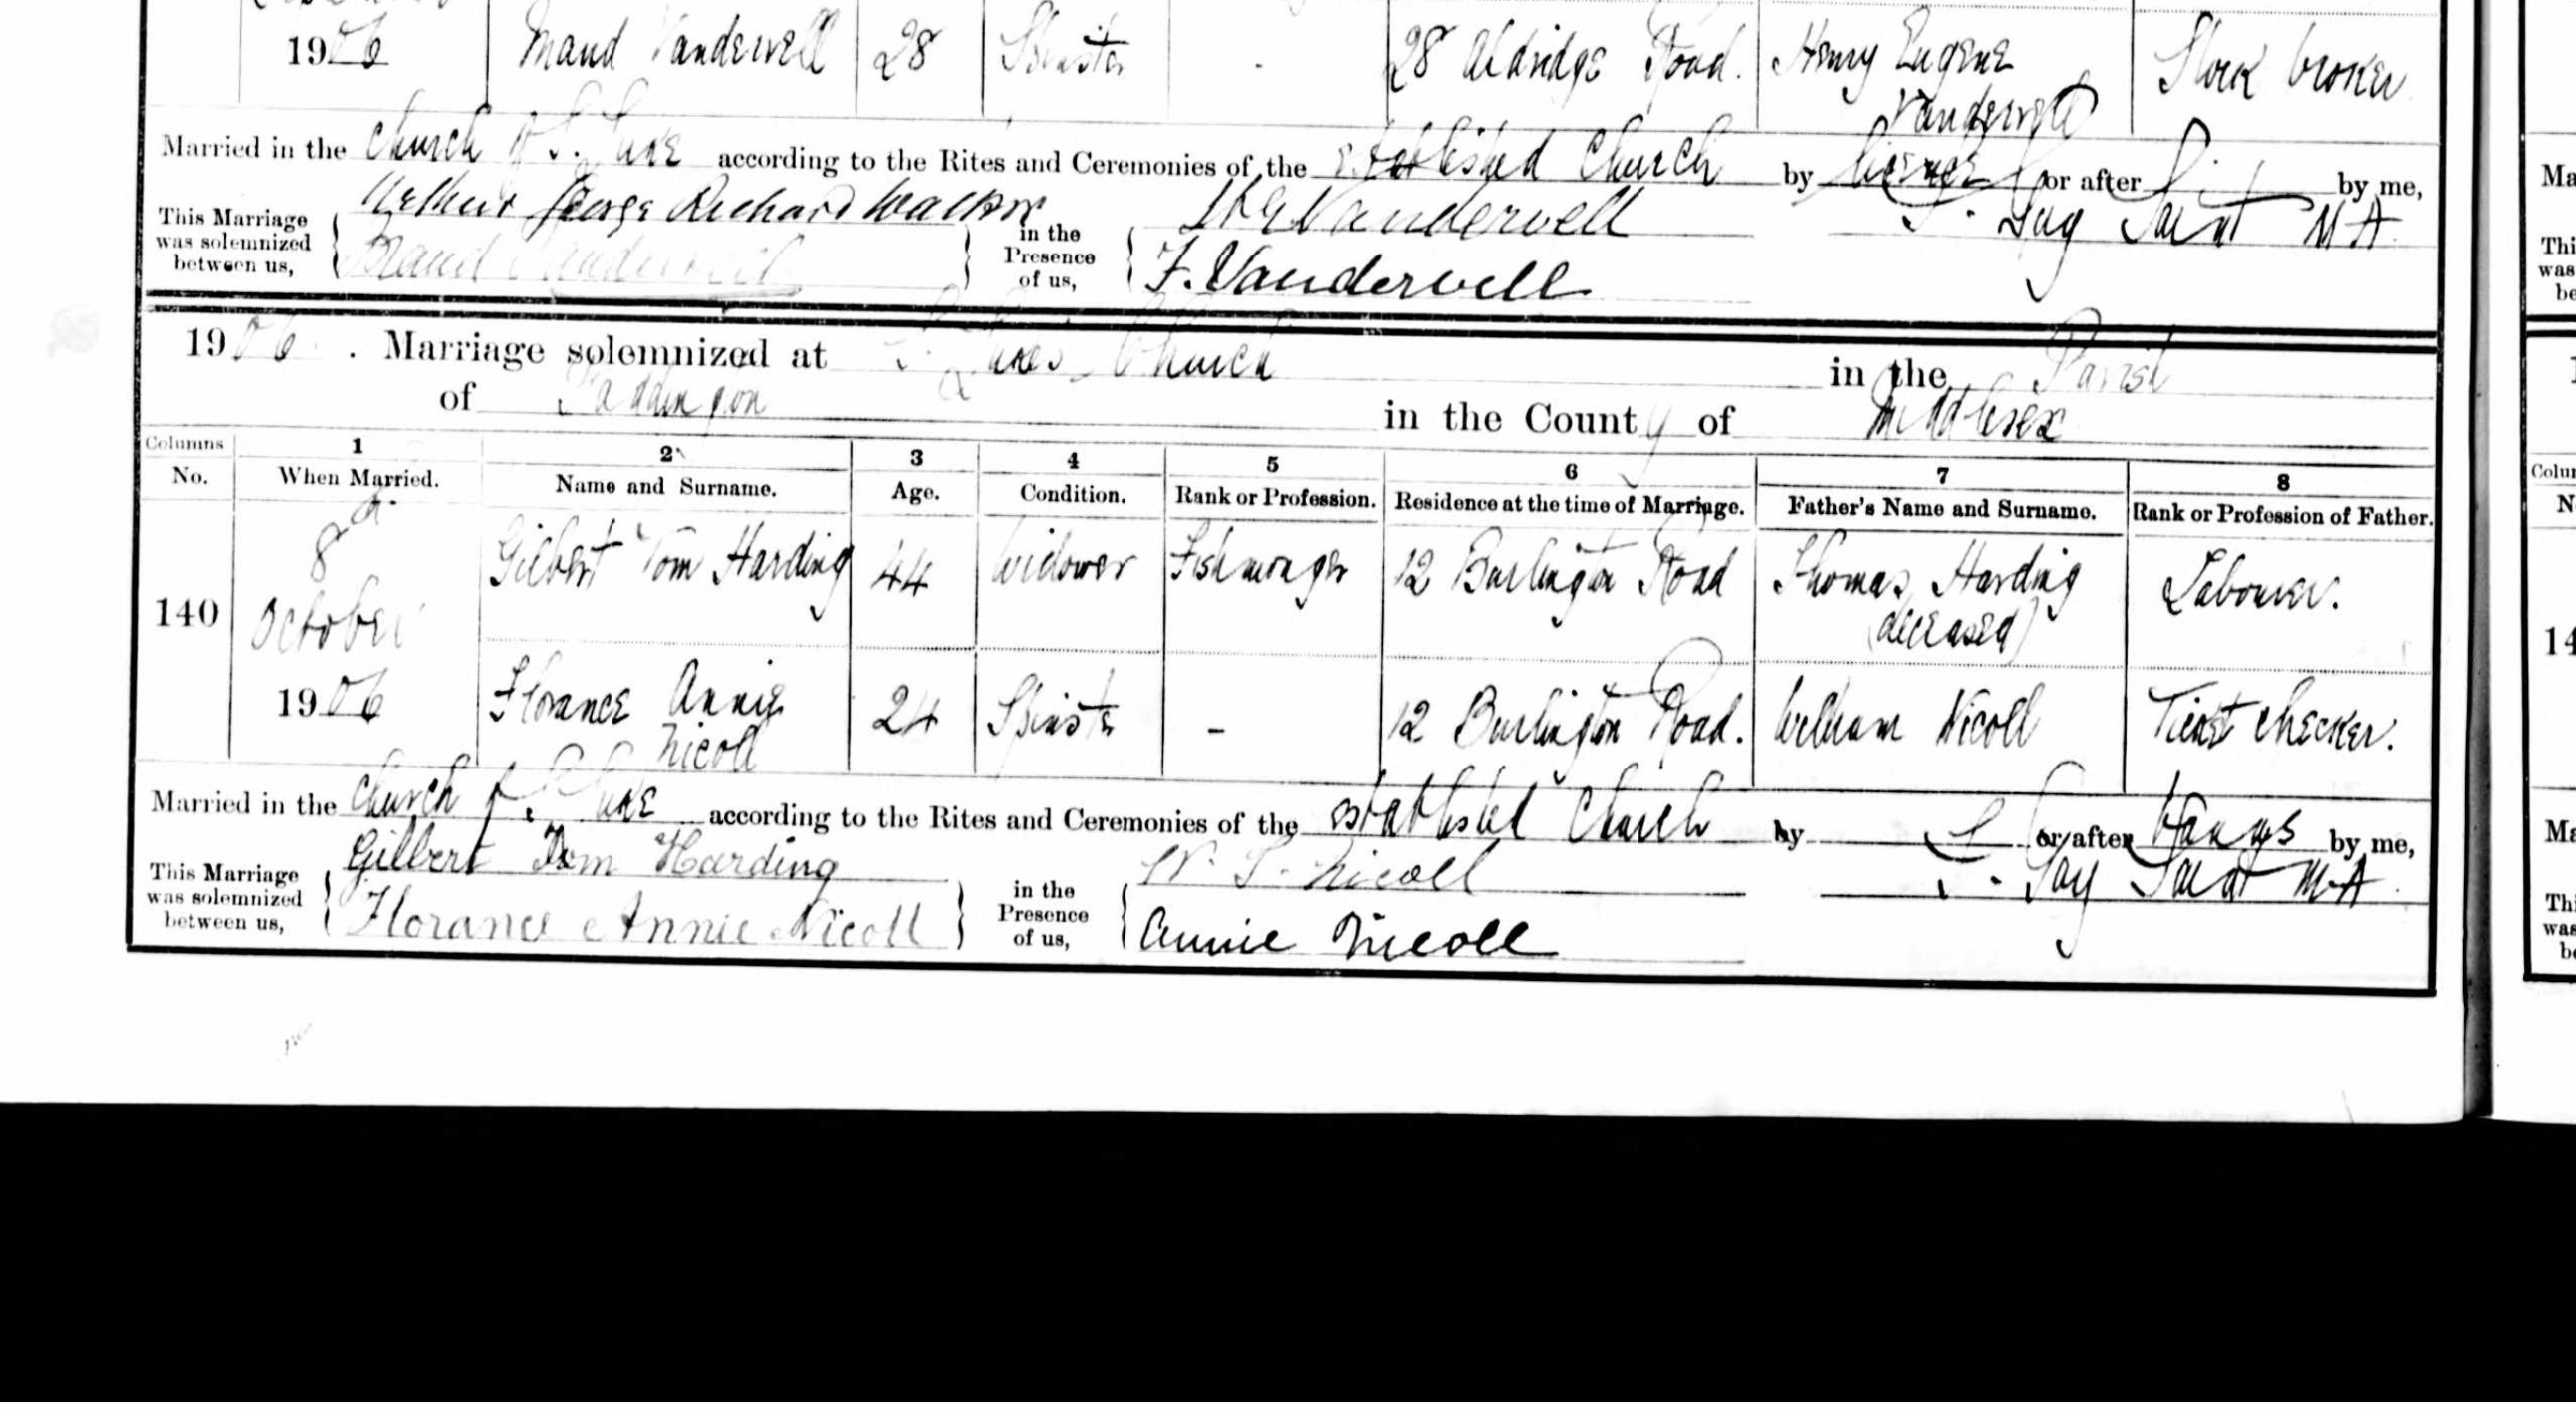 1906 Maud Vandervell 28 Spinster - 28 Aldridge Road. Henry Eugene Vandervell Stock broker
Married in the Church of S. Luke according to the Rites and Ceremonies of the Established Church by licence or after by me,
This Marriage was solemnized between us, Arthur George Richard Walker Maud Vandervell in the Presence of us, H E Vandervell F. Vandervell Saint M A
1906. Marriage solemnized at S. Lukes Church in the Parish
of Paddington in the County of Middlesex
Columns 1 2 3 4 5 6 7 8
No. When Married. Name and Surname. Age. Condition. Rank or Profession. Residence at the time of Marriage. Father's Name and Surname. Rank or Profession of Father.
140 8th October 1906
Gilbert Tom Harding 44 Widower Fishmonger 12 Burlington Road Thomas Harding (deceased) Labourer.
Florance Annie Nicoll 24 Spinster - 12 Burlington Road. William Nicoll Ticket Checker.
Married in the Church of S. Luke according to the Rites and Ceremonies of the Established Church by or after Banns by me,
This Marriage was solemnized between us, Gilbert Tom Harding Florance Annie Nicoll in the Presence of us, W. S. Nicoll Annie Nicoll Saint M.A
Ma
Thi
was
be
1
Colum
N
14
Ma
Thi
was
be